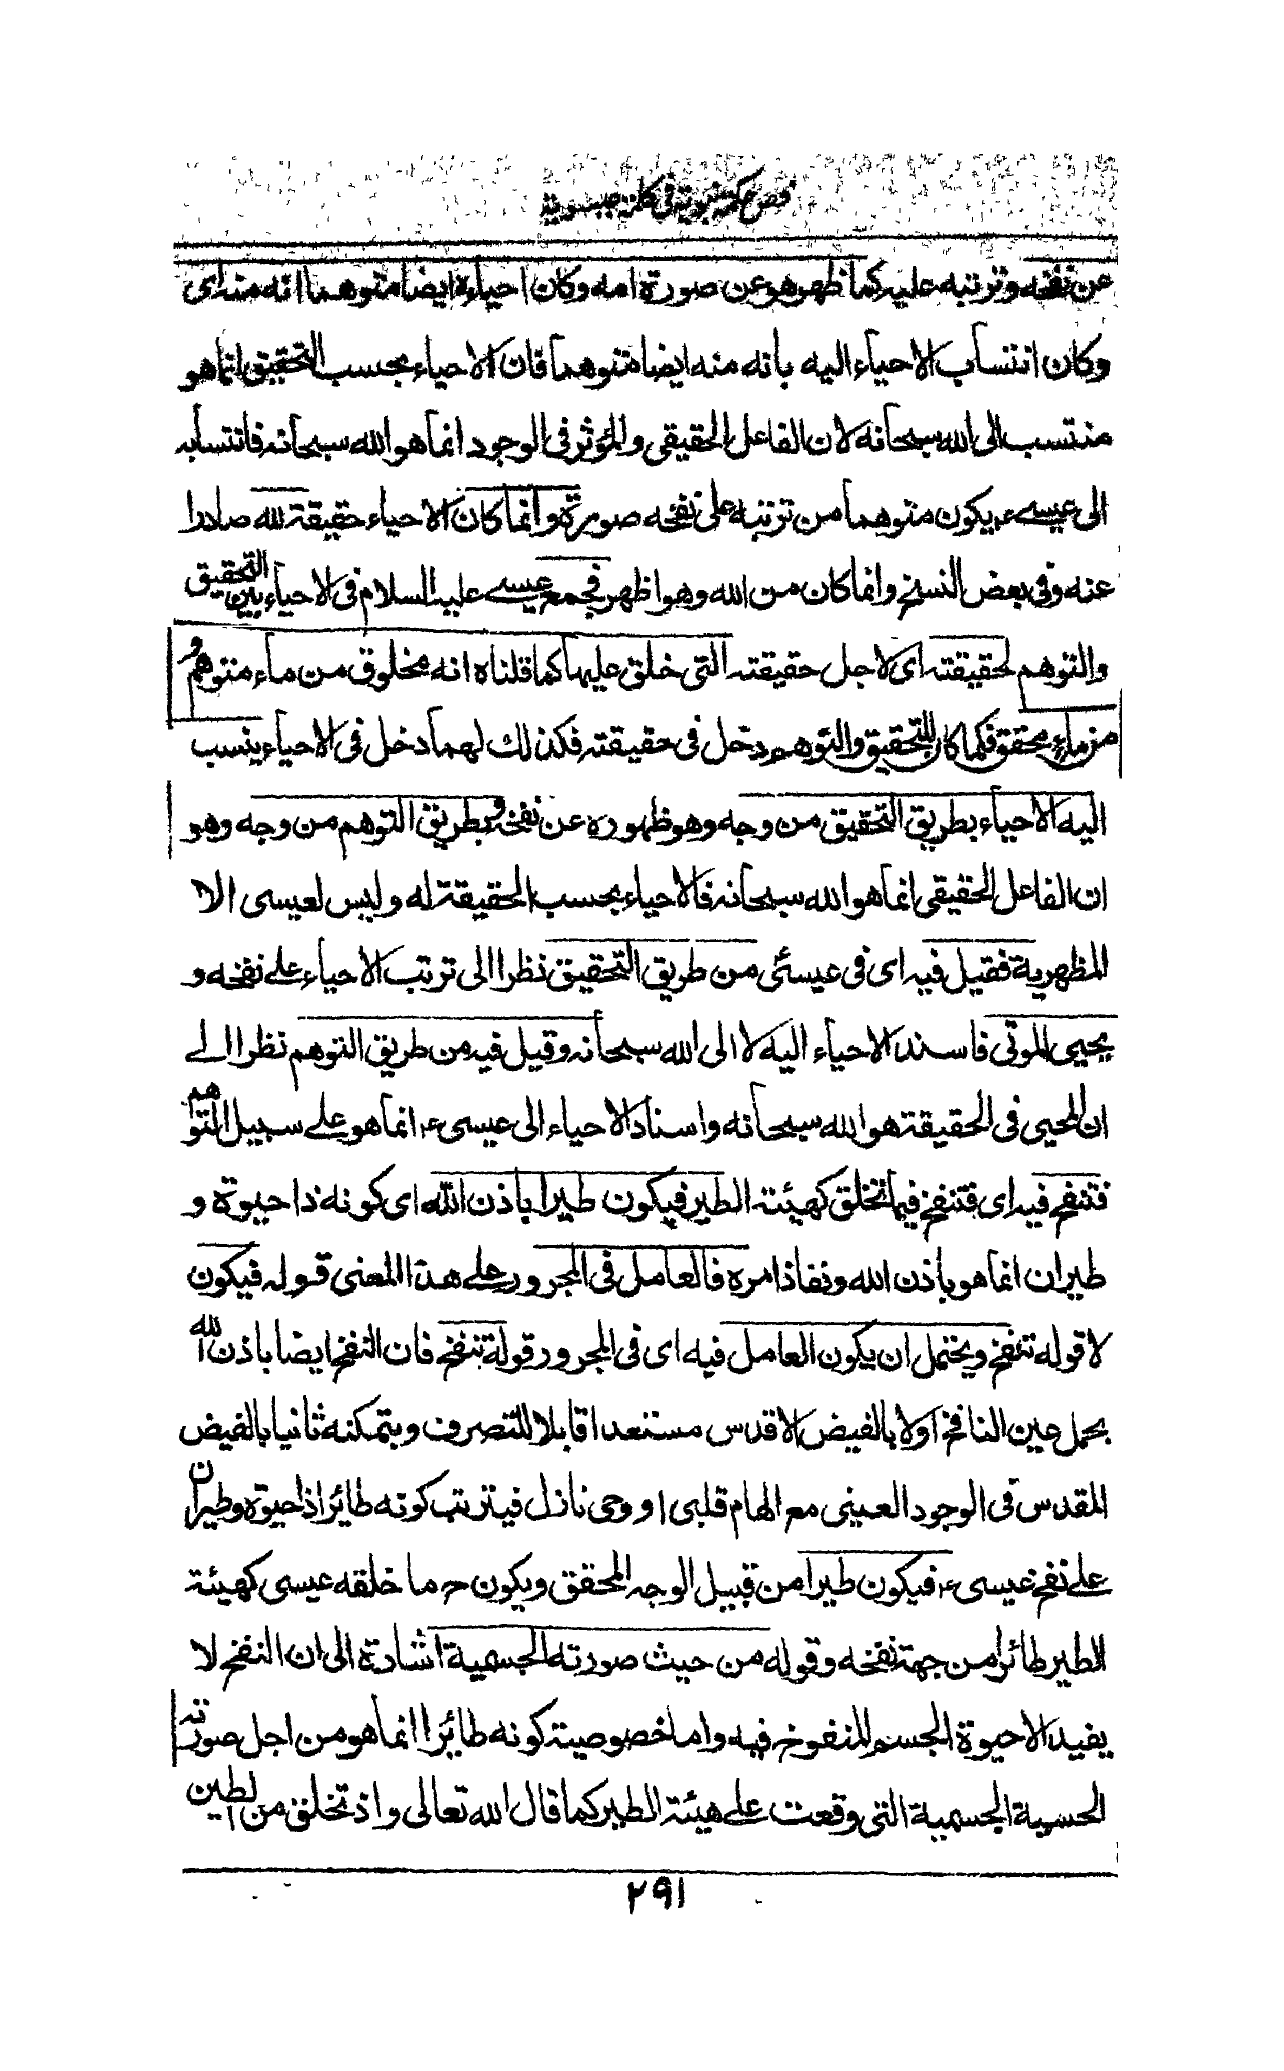 فص حكمة نبوية في كلمة عيسوية
عن نفخه وترتبه عليه كما ظهر هو عن صورة امه وكان احياءه ايضا متوهما انه منه اى
وكان انتساب الاحياء اليه بانه منه ايضا متوهما فان الاحياء بحسب التحقيق انما هو
منتسب الى الله سبحانه لان الفاعل الحقيقى والمؤثر فى الوجود انما هو الله سبحانه فانتسابه
الى عيسے ء يكون متوهما من ترتبه على نفخه صورة وانما كان الاحياء حقيقة لله صادرا
عنه وفى بعض النسخ وانما كان من الله وهو اظهر فجمع عيسے عليه السلام فى الاحياء بين التحقيق
والتوهم لحقيقته اى لاجل حقيقته التى خلق عليها كما قلناه انه مخلوق من ماء متوهم و
من ماء محقق فكما كان للتحقيق والتوهم دخل فى حقيقته فكذلك لهما دخل فى الاحياء ينسب
اليه الاحياء بطريق التحقيق من وجه وهو ظهوره عن نفخه وبطريق التوهم من وجه وهو
ان الفاعل الحقيقى انما هو الله سبحانه فالاحياء بحسب الحقيقة له وليس لعيسى الا
المظهرية فقيل فيه اى فى عيسى من طريق التحقيق نظرا الى ترتب الاحياء علے نفخه و
يحيى الموتى فاسند الاحياء اليه لا الى الله سبحانه وقيل فيه من طريق التوهم نظرا الے
ان المحيى فى الحقيقة هو الله سبحانه واسناد الاحياء الى عيسى ء انما هو علے سبيل التوهم
فتنفخ فيه اى فتنفخ فيما تخلق كهيئة الطير فيكون طيرا باذن الله اى كونه ذا حيوة و
طيران انما هو باذن الله ونفاذ امره فالعامل فى المجرور علے هذا المعنى قوله فيكون
لا قوله تنفخ ويحتمل ان يكون العامل فيه اى فى المجرور قوله تنفخ فان النفخ ايضا باذن الله
بجعل عين النافخ اولا بالفيض الاقدس مستعدا قابلا للتصرف وبتمكنه ثانيا بالفيض
المقدس فى الوجود العينى مع الهام قلبى او وحى نازل فيترتب كونه طائرا ذا حيوة وطيران
علے نفخ عيسى ء فيكون طيرا من قبيل الوجه المحقق ويكون ح ما خلقه عيسى كهيئة
الطير طائرا من جهة نفخه وقوله من حيث صورته الجسمية اشارة الى ان النفخ لا
يفيد الا حيوة الجسم المنفوخ فيه واما خصوصية كونه طائرا انما هو من اجل صورته
الحسية الجسمية التى وقعت علے هيئة الطير كما قال الله تعالى واذ تخلق من الطين
۲۹۱